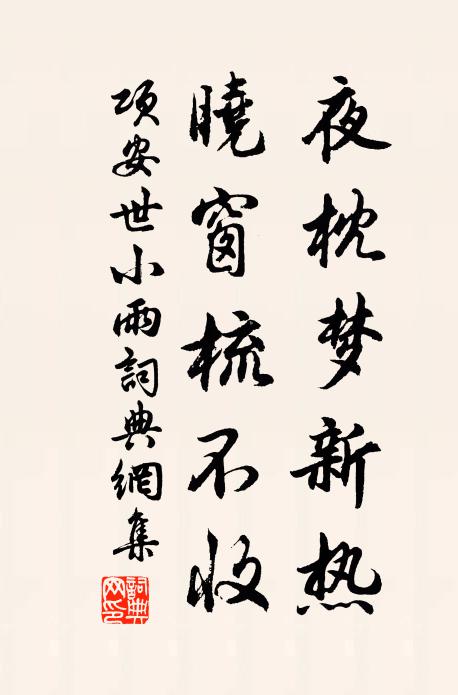 夜枕梦新热
曉窗梳不收
項安世小雨詞典網集
詞典網印